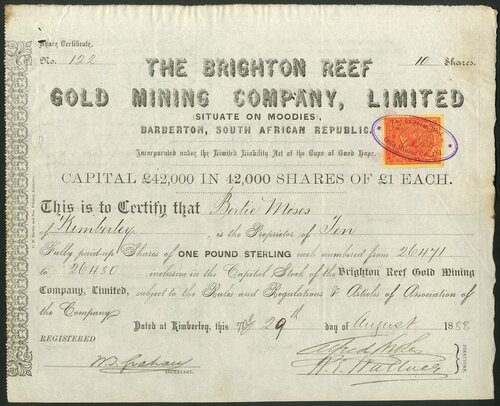 Share Certificate.
No. 122 10 Shares.
THE BRIGHTON REEF
GOLD MINING COMPANY, LIMITED
(SITUATE ON MOODIES),
BARBERTON, SOUTH AFRICAN REPUBLIC.
Incorporated under the Limited Liability Act of the Cape of Good Hope.
CAPITAL £42,000 IN 42,000 SHARES OF £1 EACH.
This is to Certify that Bertie Moses
of Kimberley, is the Proprietor of Ten
Fully paid-up Shares of ONE POUND STERLING each numbered from 26471
to 26480 inclusive in the Capital Stock of the Brighton Reef Gold Mining
Company, Limited, subject to the Rules and Regulations & Articles of Association of
the Company
Dated at Kimberley, this 29th day of August 1888
REGISTERED
SECRETARY.
DIRECTORS.